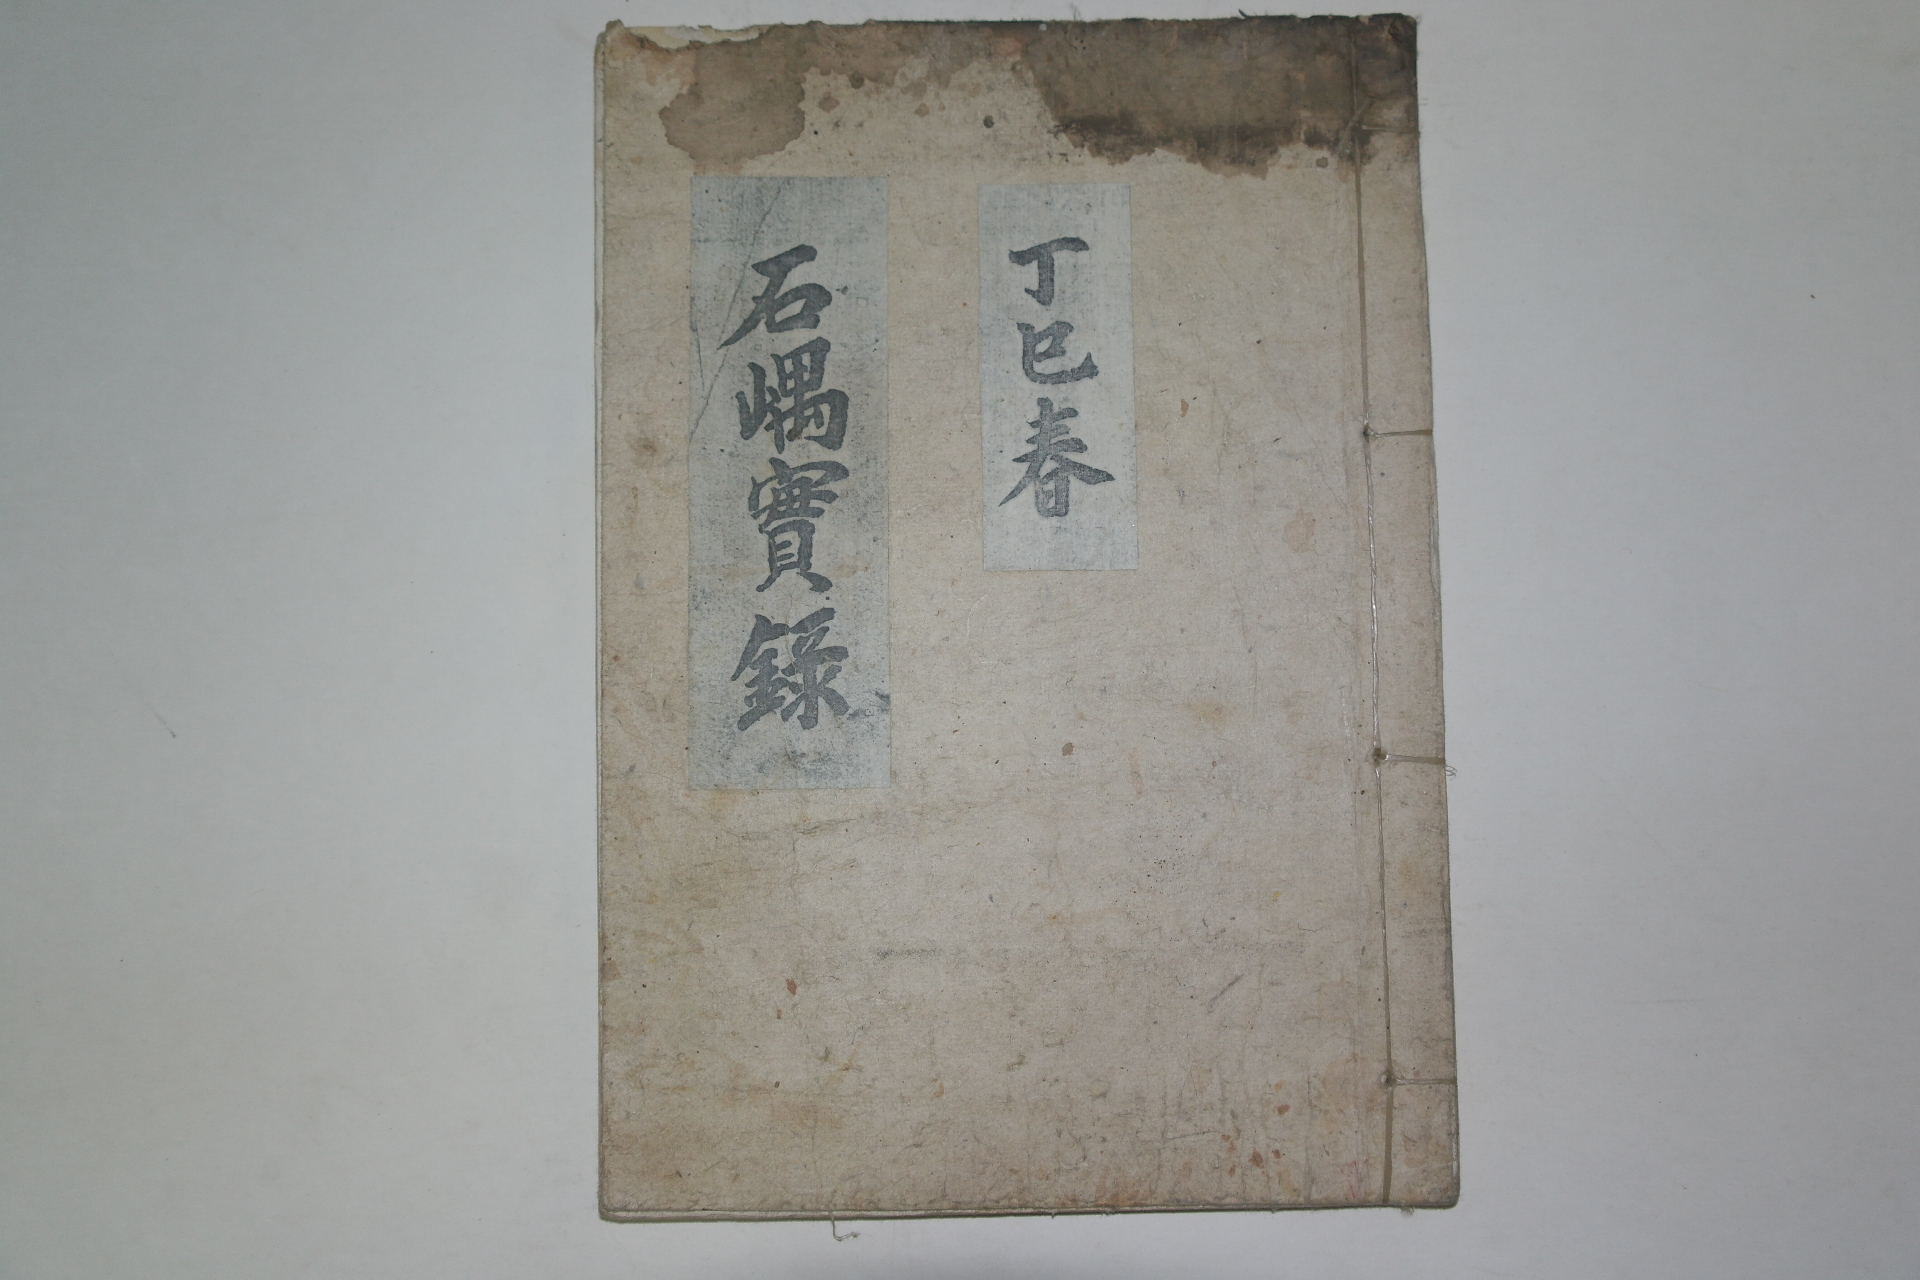 丁巳春
石嵎實錄